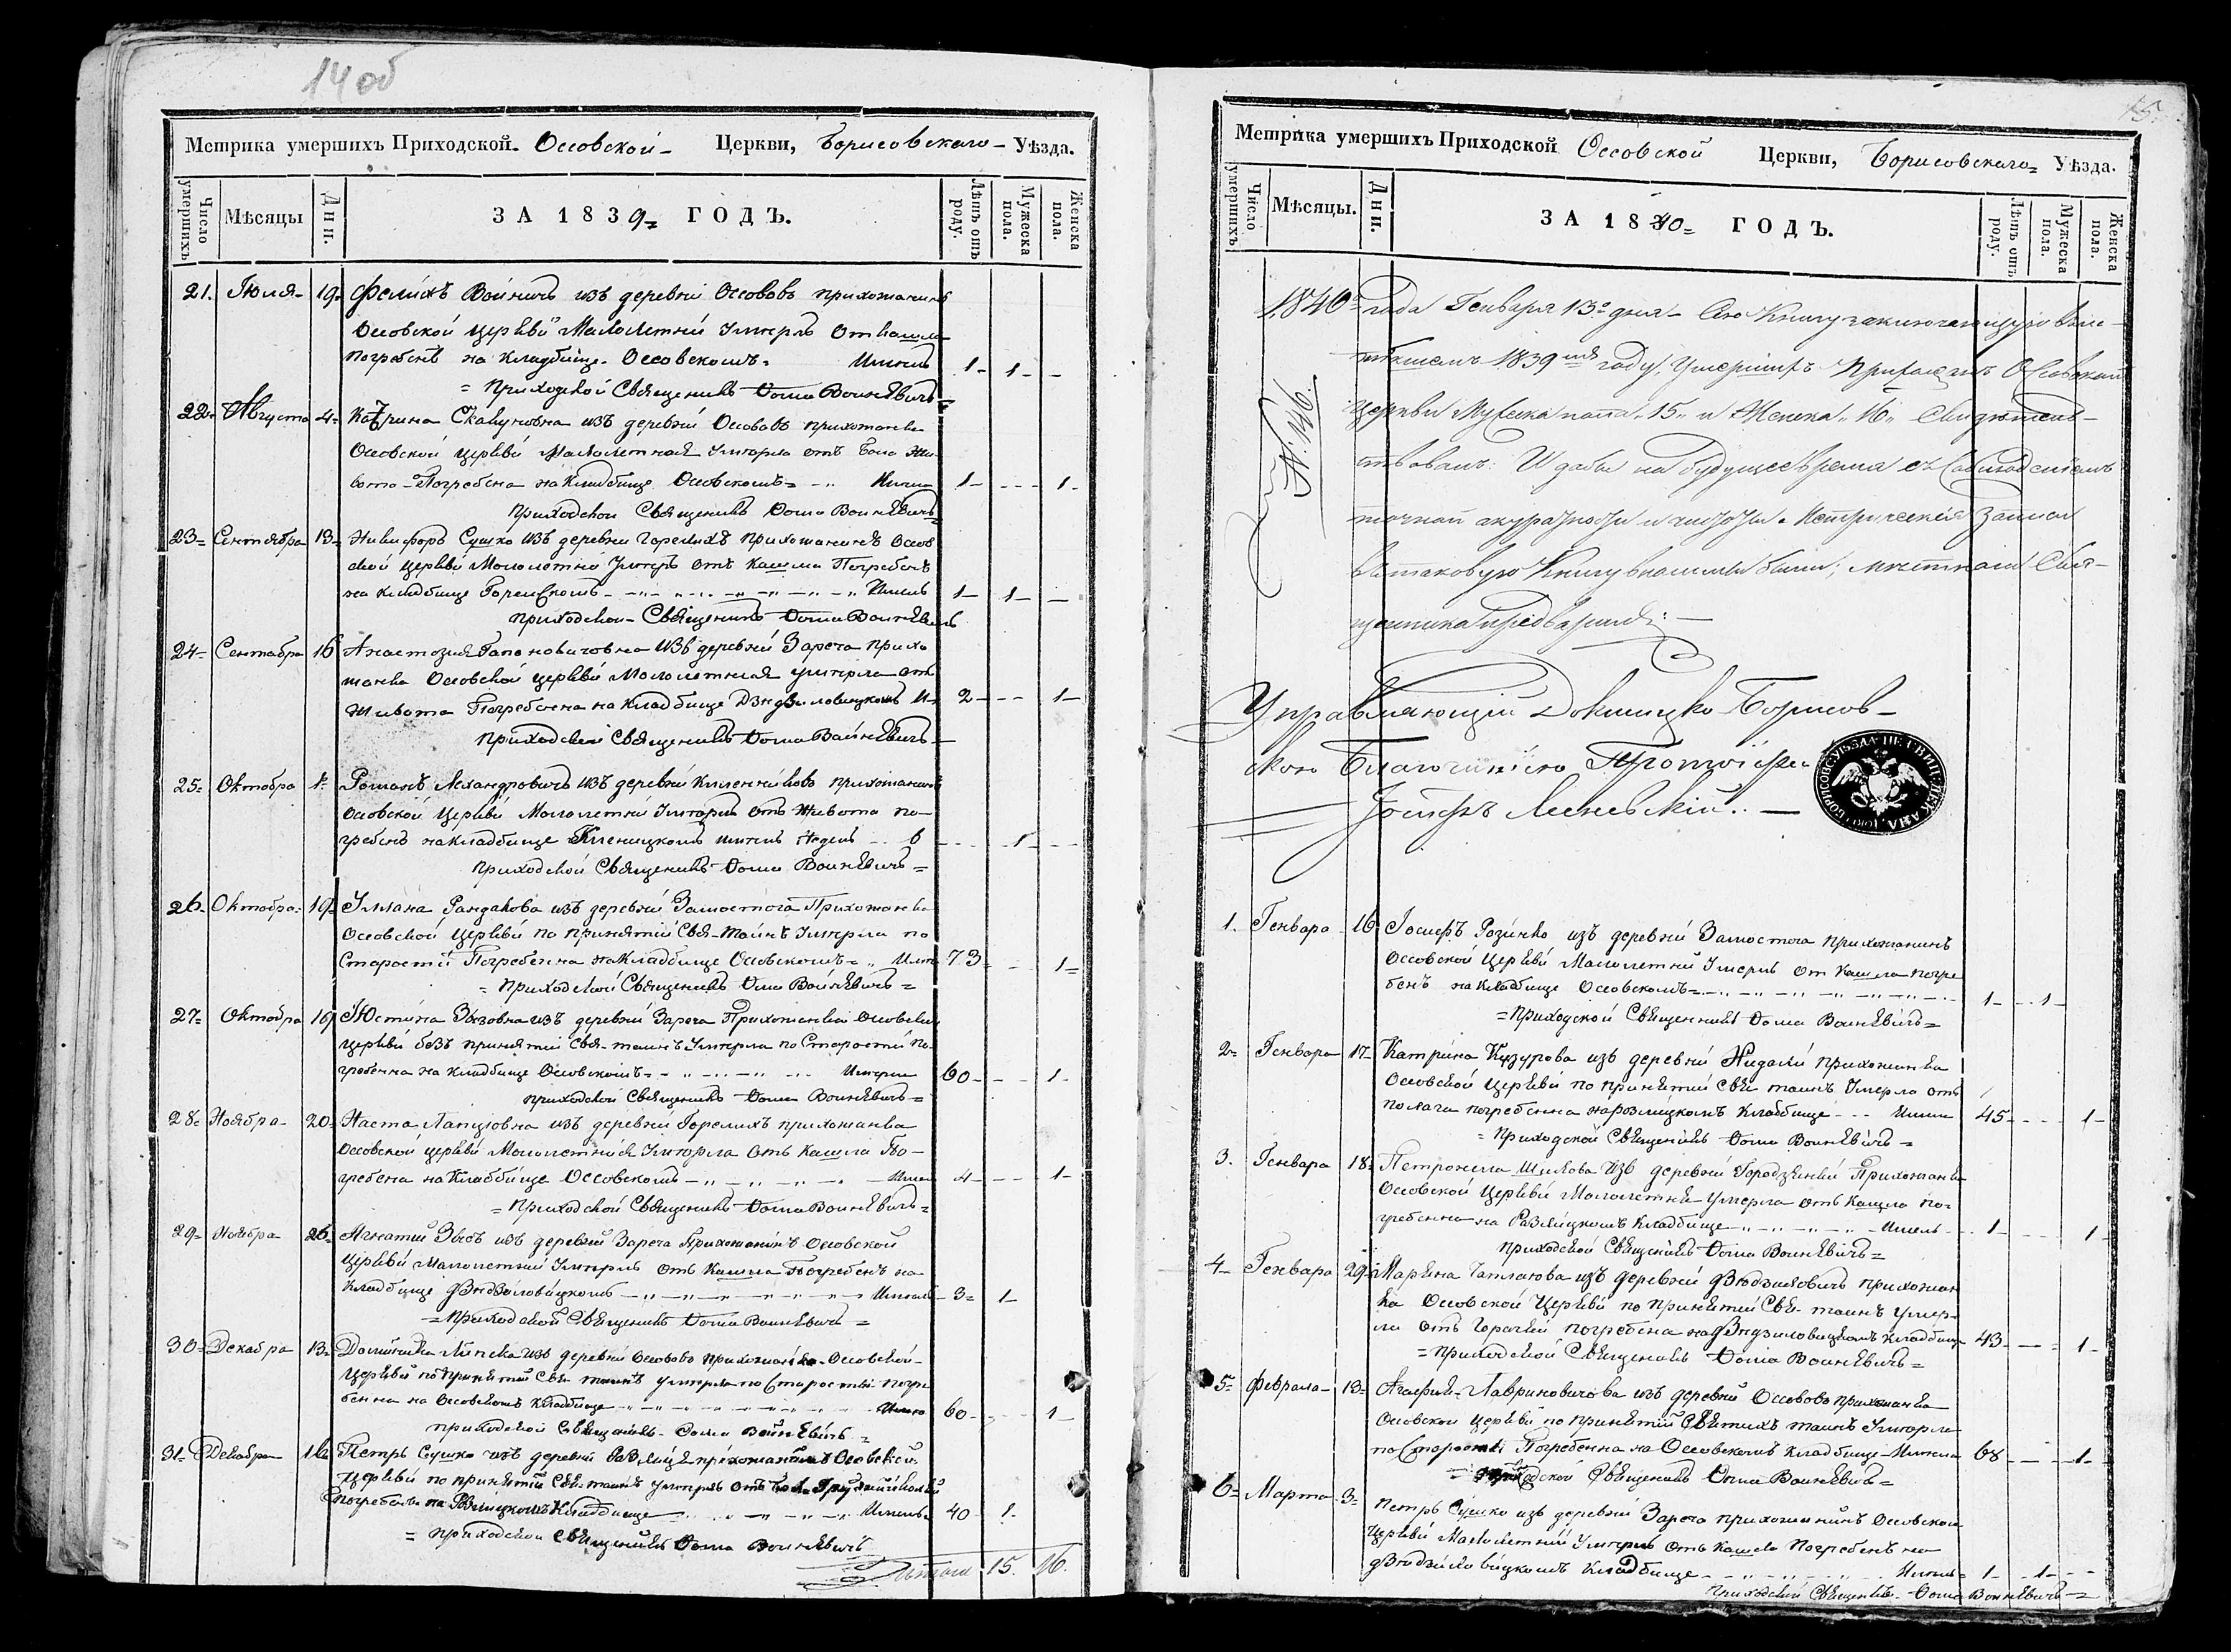 14 об
Метрика умершихъ Приходской Оссовской Церкви, Борисовскаго Уѣзда.
Число умершихъ
Мѣсяцы
Дни.
ЗА 1839 ГОДЪ.
Лѣтъ отъ роду.
Мужеска пола.
Женска пола.
21. Іюля 19 Феликъ Войничъ изъ деревни Оссововъ прихожанинъ
Оссовской церкви Малолетній Умеръ от кашля
погребенъ на кладбище Оссовскомъ Имелъ 1 1
Приходской Священникъ Фома Воинѣвичъ
22 Августа 4 Катрина Скакуновна изъ деревни Оссововъ прихожанка
Оссовской церкви Малолетная Умерла отъ Боли Жи-
вота Погребена на Кладбище Оссовскомъ Имела 1 1
Приходской Священникъ Фома Воинѣвичъ
23 Сентября 13 Никифоръ Сушко изъ деревни Горелихъ прихожанинъ Оссов
ской церкви Малолетній Умеръ отъ Кашля Погребенъ
на Кладбище Имелъ 1 1
приходской Священникъ Фома Воинѣвичъ
24 Сентября 16 Анастозия Гапоновичовна изъ деревни Заречя прихо
жанка Оссовской церкви Малолетная умерла отъ
Живота Погребенна на Кладбище 2 1
приходской Священникъ Фома Воинѣвичъ
25 Октобра 1 Романъ Лехандровичъ изъ деревни прихожанинъ
Оссовской Церкви Малолетній Умеръ отъ Живота по-
гребенъ на кладбище имелъ Недель 6 1
приходской Священникъ Фома Воинѣвичъ
26 Октобра 19 Улляна Рандакова изъ деревни Замосточа Прихожанка
Оссовской Церкви по принятіи Свя. Таинъ Умерла по
Старости Погребенна на Кладбище Оссовскомъ 73 1
Приходской Священникъ Фома Воинѣвичъ
27 Октобра 19 Юстина Зызовна изъ деревни Зареча Прихожанка Оссовской
Церкви безъ принятіи Свя. таинъ Умерла по Старости по-
гребенна на Кладбище Оссовскомъ 60 1
приходской Священникъ Фома Воинѣвичъ
28 Ноября 20 Наста Лапуловна изъ деревни Горелихъ прихожанка
Оссовской церкви Малолетная Умерла отъ Кашля По-
гребена на Кладбище Оссовскомъ 4 1
Приходской Священникъ Фома Воинѣвичъ
29 Ноябра 26 Агнатий Зызъ изъ деревни Зареча Прихожанинъ Оссовской
Церкви Малолетній Умеръ отъ Кашла Погребенъ на
Кладбище Имелъ 3 1
Приходской Священникъ Фома Воинѣвичъ
30 Декабра 13 Доминика Липска изъ деревни Оссововъ прихожанка Оссовской
Церкви по принятіи Свя. таинъ умерла по Старости погре
бенна на Оссовскомъ Кладбище 60 1
приходской Священникъ Фома Воинѣвичъ
31 Декабра Петръ Сушко изъ деревни прихожанинъ Оссовской
Церкви по принятіи Свя. таинъ умеръ отъ
Погребенъ на Кладбище Имелъ 40 1
приходской Священникъ Фома Воинѣвичъ
Итого 15. 16.
15.
Метрика умершихъ Приходской Оссовской Церкви, Борисовскаго Уѣзда.
Число умершихъ
Мѣсяцы.
Дни.
ЗА 1840 ГОДЪ.
Лѣтъ отъ роду.
Мужеска пола.
Женска пола.
1840 года Генваря 13 дня Сію Книгу заключающую въ се-
1839 году Умершихъ Прихожанъ Оссовской
Церкви Мужска пола 15 и Женска 16 Свидѣтель-
ствовалъ: И дабы на будущее время съ
точной акуратности и Метрическія Записи
въ таковую Книгу вносимы были, мѣстнаго Свя-
щенника предварилъ:
№ 146.
Управляющій Докшицко Борисов-
скою Благочиніею Протоіерей
Іосифъ
1. Генвара 16 Іосифъ Розинко изъ деревни Замосточа прихожанинъ
Оссовской Церкви Малолетній Умеръ от Кашля погре
бенъ на Кладбище Оссовскомъ 1 1
Приходской Священникъ Фома Воинѣвичъ
2 Генвара 17 Катрина Кузурова изъ деревни прихожанка
Оссовской Церкви по принятіи Свя таинъ Умерла отъ
погребенна на Кладбище 45 1
Приходской Священникъ Фома Воинѣвичъ
3. Генвара 18 Петронела Шилова изъ деревни Прихожанка
Оссовской Церкви Малолетня умерла отъ Кашла по-
гребенна на Кладбище 1 1
приходской Священникъ Фома Воинѣвичъ
4 Генвара 29 Марьяна изъ деревни прихожан
ка Оссовской Церкви по принятіи Свя. таинъ умер-
ла отъ Горачки погребена на Кладбище 43 1
приходской Священникъ Фома Воинѣвичъ
5 Феврала 13 Агафия Лавриновичова изъ деревни Оссововъ прихожанка
Оссовской Церкви по принятіи Святихъ таинъ Умерла
по Старости Погребенна на Оссовскомъ Кладбище 68 1
Приходской Священникъ Фома Воинѣвичъ
6 Марта 3 Петръ Сушко изъ деревни Зареча прихожанинъ Оссовской
Церкви Малолетній Умеръ отъ Кашла Погребенъ на
Кладбище 1 1
Приходской Священникъ Фома Воинѣвичъ